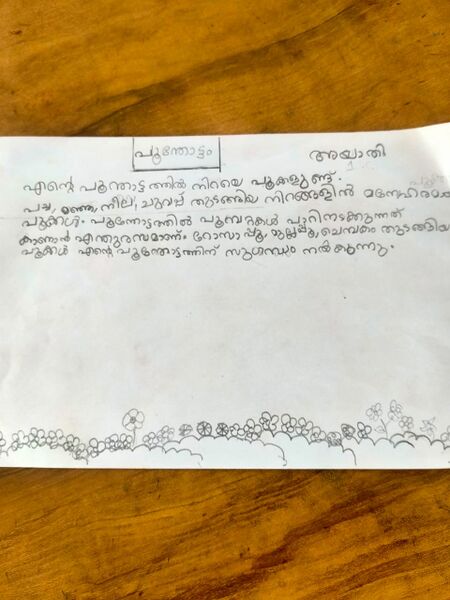 പൂന്തോട്ടം
അയാതി
1
എന്റെ പൂന്തോട്ടത്തിൽ നിറയെ പൂക്കളുണ്ട്.
പച്ച, മഞ്ഞ, നീല, ചുവപ്പ് തുടങ്ങിയ നിറങ്ങളിൽ മനോഹരമായ
പൂക്കൾ. പൂന്തോട്ടത്തിൽ പൂമ്പാറ്റകൾ പാറിനടക്കുന്നത്
കാണാൻ എന്തുരസമാണ്. റോസാപ്പൂ, മുല്ലപ്പൂ, ചെമ്പകം തുടങ്ങിയ
പൂക്കൾ എന്റെ പൂന്തോട്ടത്തിന് സുഗന്ധം നൽകുന്നു.